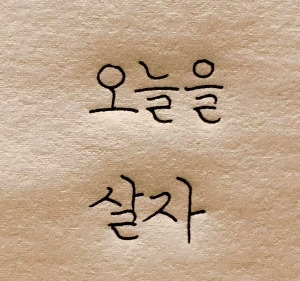 오늘을
살자